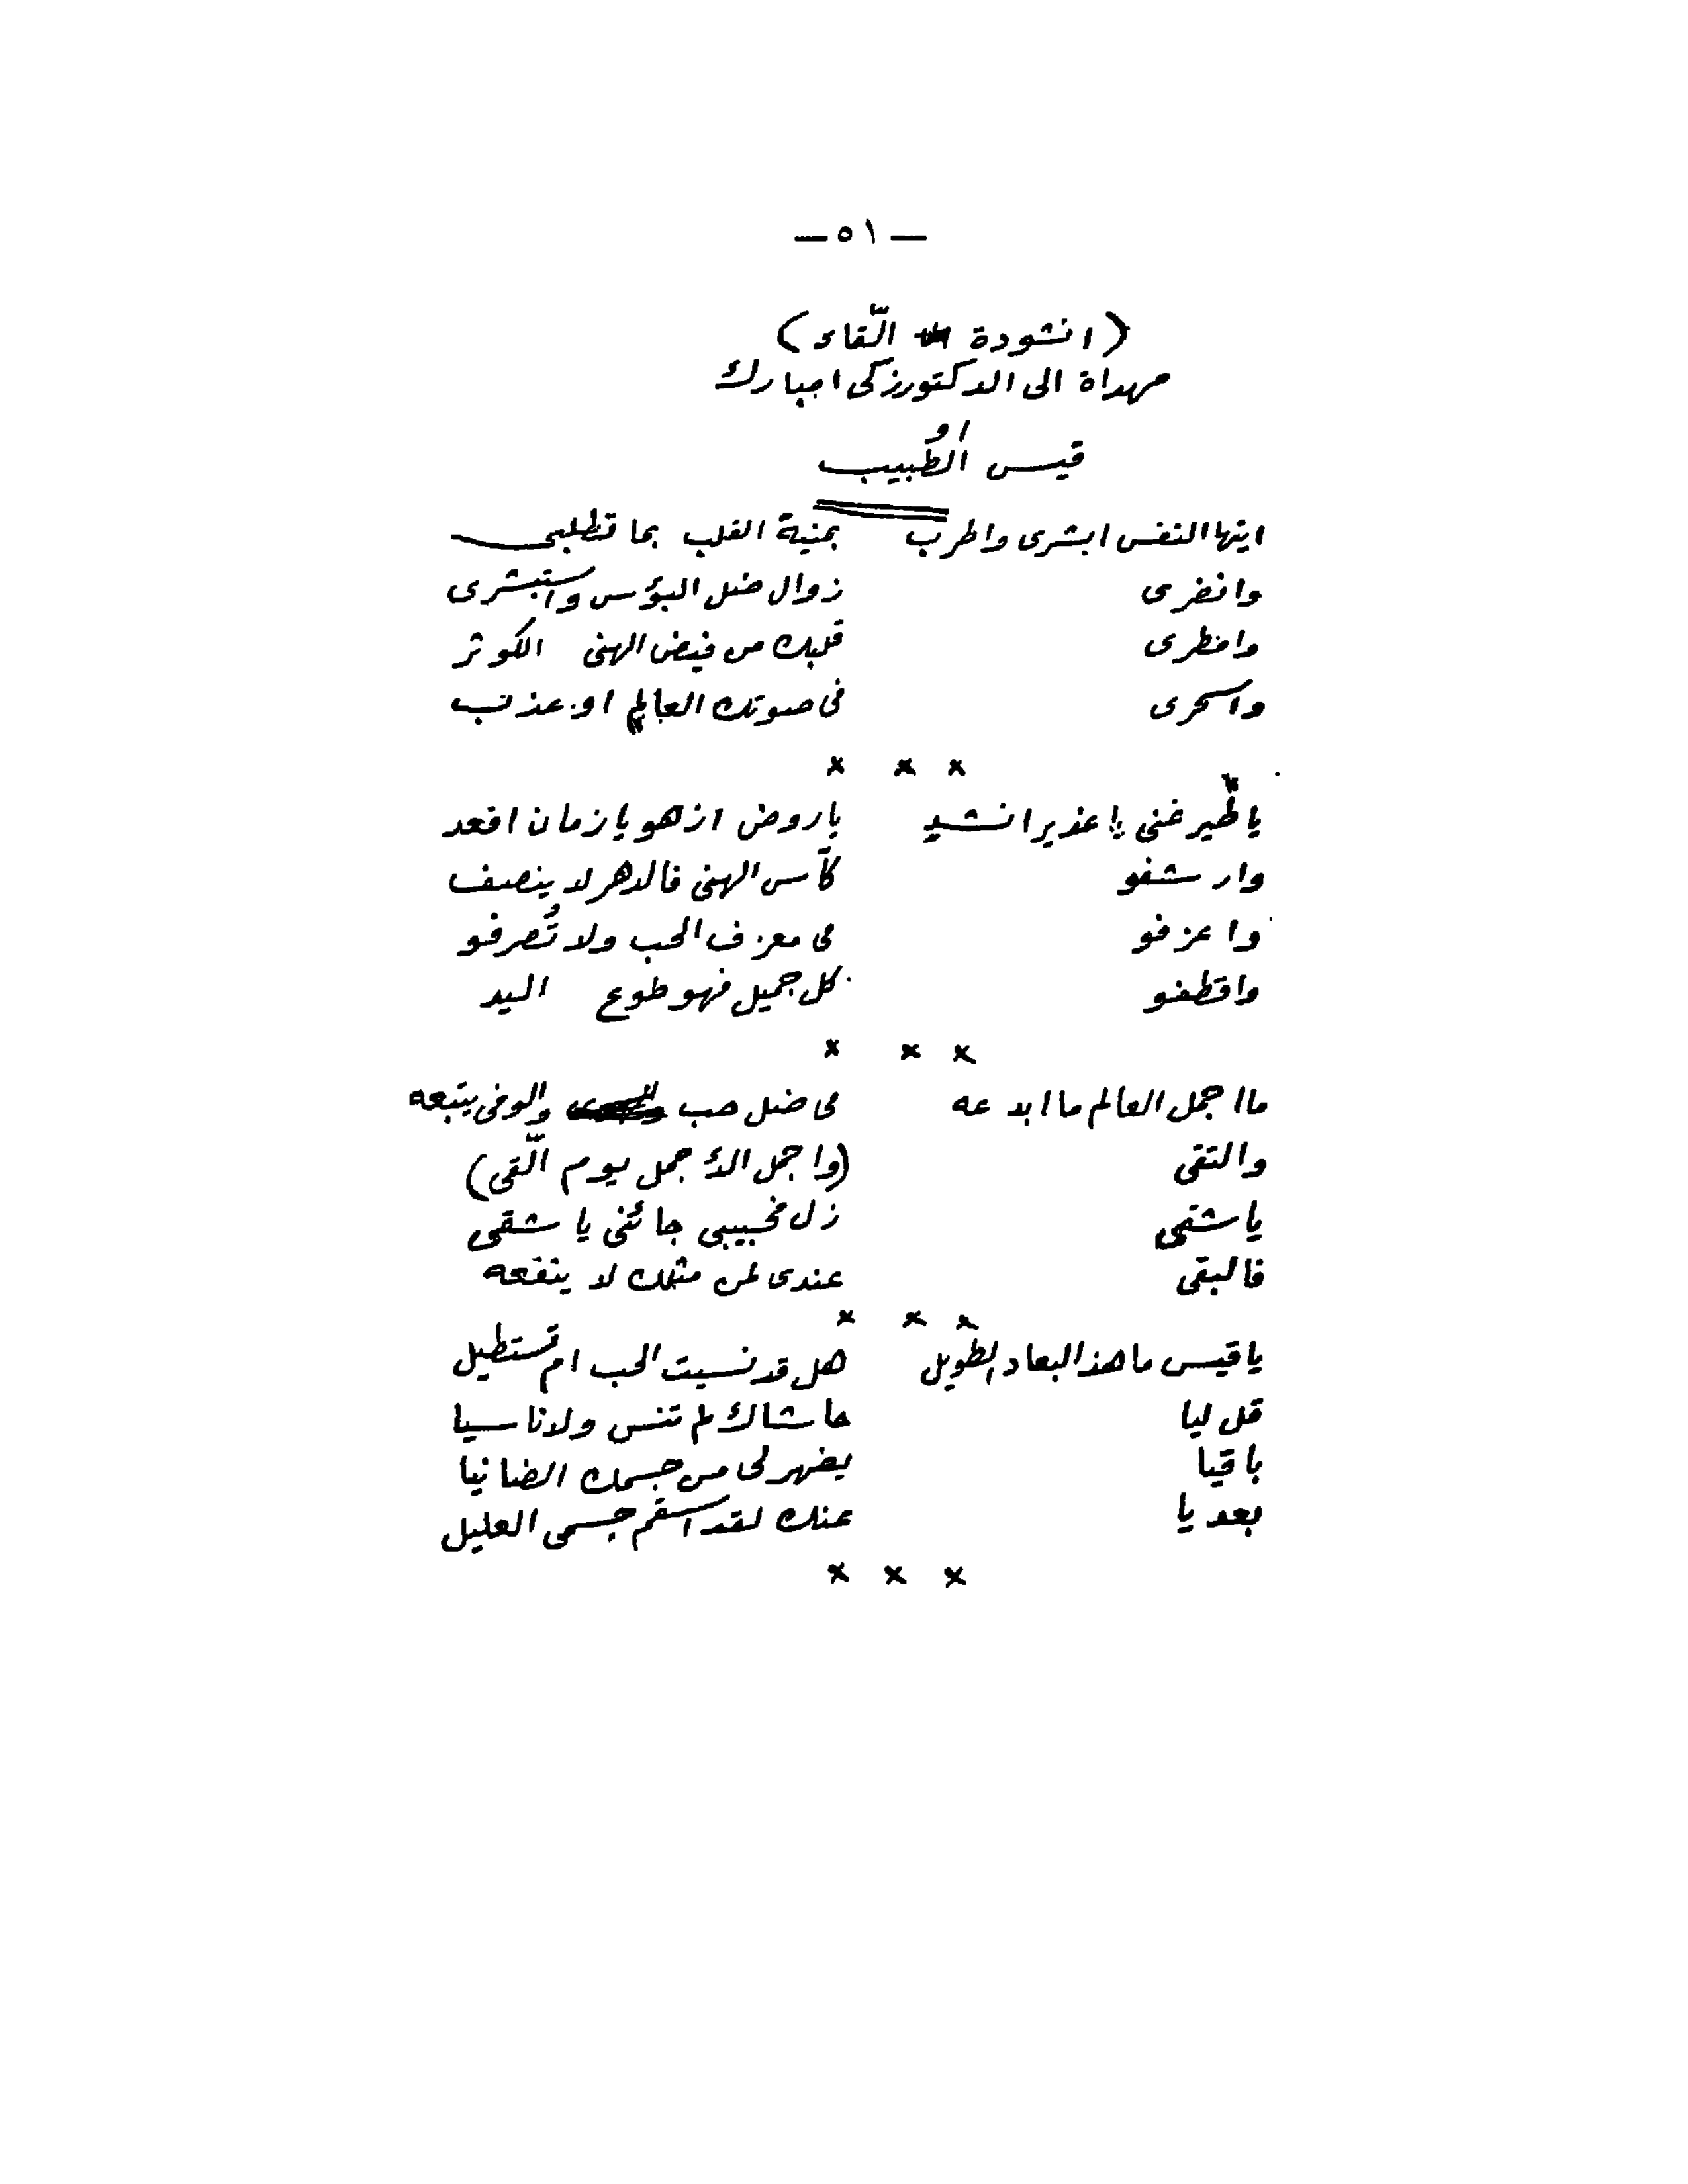 — ٥١ —
(انشودة الّقاء)
مهداة الى الدكتور زكى امبارك
او
قيس الطبيب
ايتها النفس ابشرى واطرب بمنية القلب بما تطلبى
وانضرى زوال ضل البؤس واستبشرى
وامطرى قلبك من فيض الهنى الكوثر
واسكرى فى صوتك العالم او عذب
× × ×
يا طير غنى يا غدير انشد ياروض ازهو يا زمان اقعد
وارشفو كأس الهنى فالدهر لا ينصف
واعزفو فى معزف الحب ولا تُصرفو
واقطفو كل جميل فهو طوع اليد
× × ×
ما اجمل العالم ما ابدعه فى ضل حب والوفى يتبعه
والتقى (واجمل الأجمل يوم الّقى)
يا شقى زل فحبيبى جائنى يا شقى
فالبقى عندى لمن مثلك لا ينفعه
× × ×
يا قيس ما هذ البعاد الطويل هل قد نسيت الحب ام تستطيل
قل ليا حاشاك لم تنس ولا ناسيا
باقيا يضهر لى من جسمك الضانيا
بعد يا عنك لقد اسقم جسمى العليل
× × ×